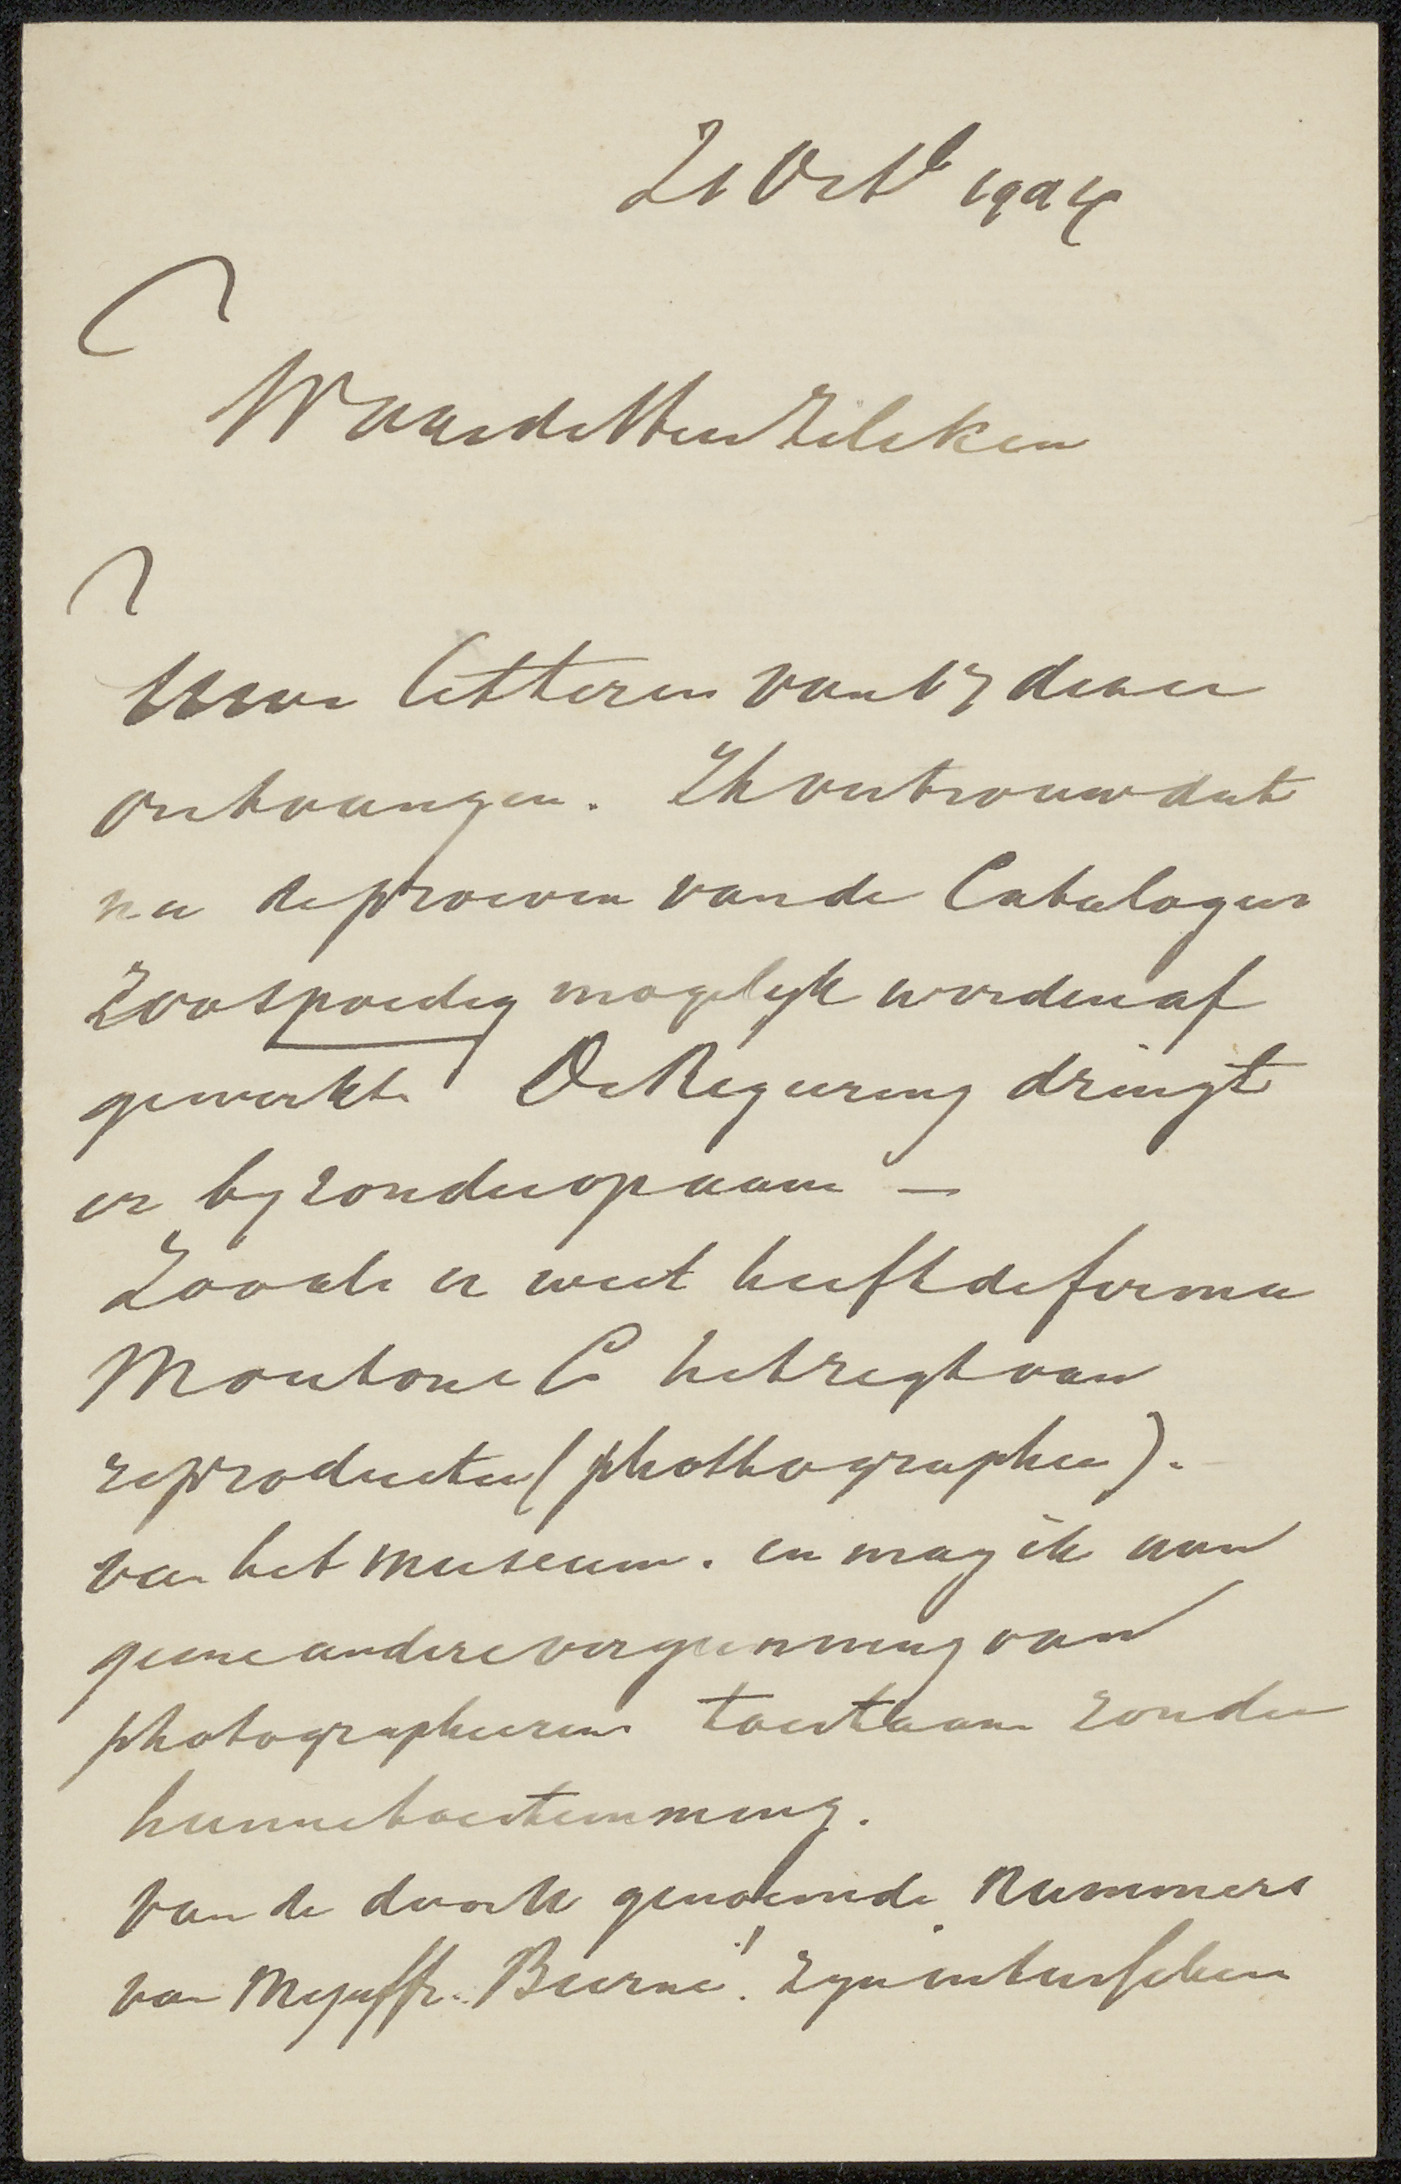 21 Octb 1904
Waarde Heer Zilcken
Uwe letteren van 17 dezer
ontvangen. Ik vertrouw dat
nu de proeven van de Catalogus
Zoo spoedig mogelyk worden af
gewerkt. De Regeering dringt
er byzonder op aan —
Zooals u weet heeft de firma
Mouton & Co het regt van
reproductie (photographie).
van het Museum. en mag ik aan
geene andere vergunning van
photographeeren toestaan zonder
hunne toestemming.
van de door U genoemde nummers
van Mejuffr. zyn intusschen